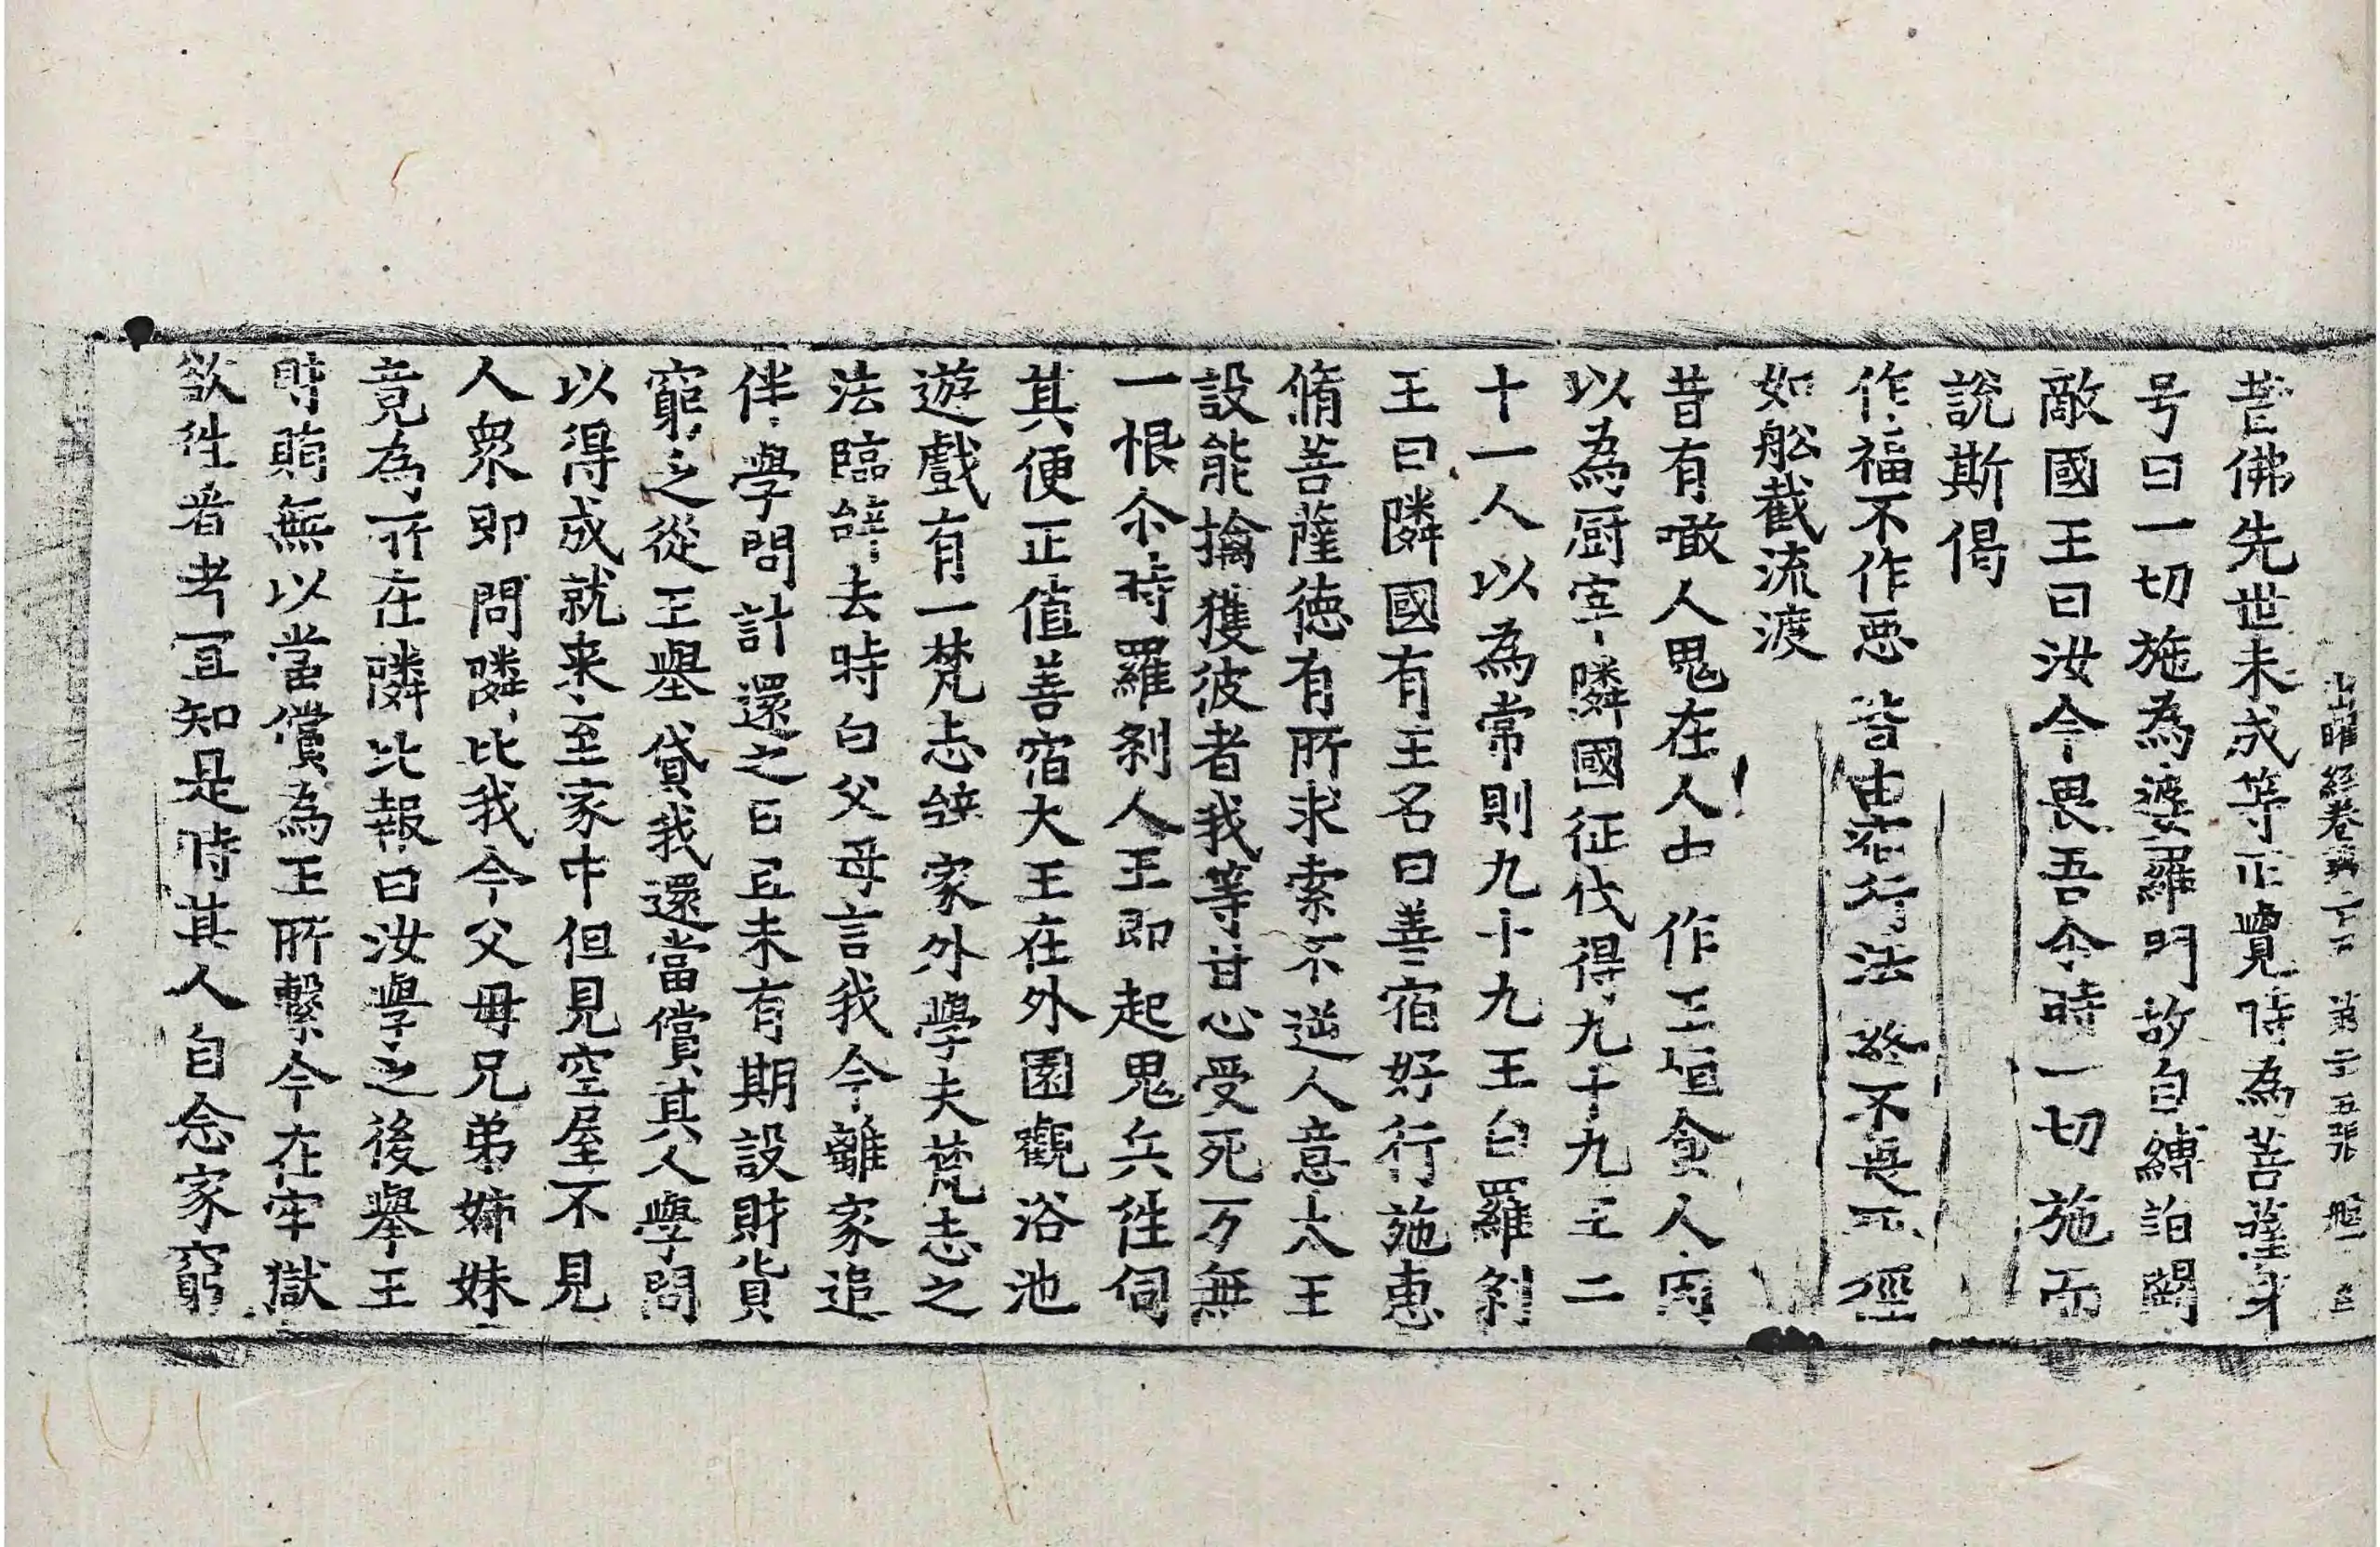 出曜經卷第二十五 第二十五張 𦨣
昔佛先世未成等正覺時為菩薩身
号曰一切施為婆羅門故自縛詣
敵國王曰汝今畏吾今時一切施而
說斯偈
作福不作惡 皆由宿行法 終不畏死徑
如舩截流渡
昔有噉人鬼在人中 作王恒食人肉
以為厨宰隣國征伐得九十九王二
十一人以為常則九十九王白羅剎
王曰隣國有王名曰善宿好行施惠
脩菩薩德有所求索不逆人意大王
設能擒獲彼者我等甘心受死万無
一恨尒時羅剎人王即起鬼兵往伺
其便正值善宿大王在外園觀浴池
遊戲有一梵志辭家外學夫梵志之
法臨辭去時白父母言我今離家追
伴學問計還之日且未有期設財貨
窮之從王舉貸我還當償其人學問
以得成就来至家中但見空屋不見
人眾即問隣比我今父母兄弟姊妹
竟為所在隣比報曰汝學之後舉王
時賄無以當償為王所繫今在牢獄
欲往看者宜知是時其人自念家窮